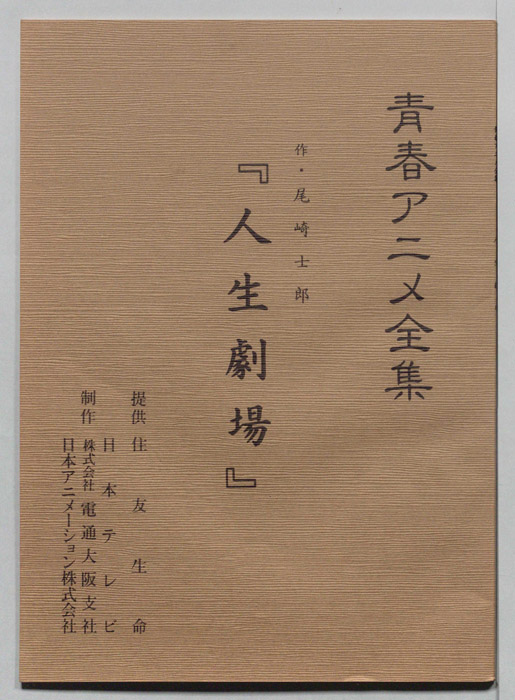 青春アニメ全集
作・尾崎士郎
『人生劇場』
提供 住友生命
制作 日本テレビ
株式会社電通大阪支社
日本アニメーション株式会社